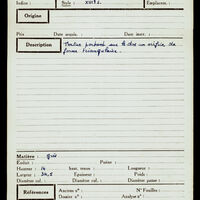 Indice : Style : XVIII s. Emplacem. :
Origine
Prix Date acquis. : Date inscr. :
Description portant sur le dos un orifice de
forme triangulaire.
Matière : grès
Enduit : Poids :
Hauteur : 14 haut. : Longueur :
Largeur : 34,5 Epaisseur :
Diamètre col. : Diamètre panse :
Références
Ancien n° : N° Feuilles :
Dossier n° : Analyse n° :